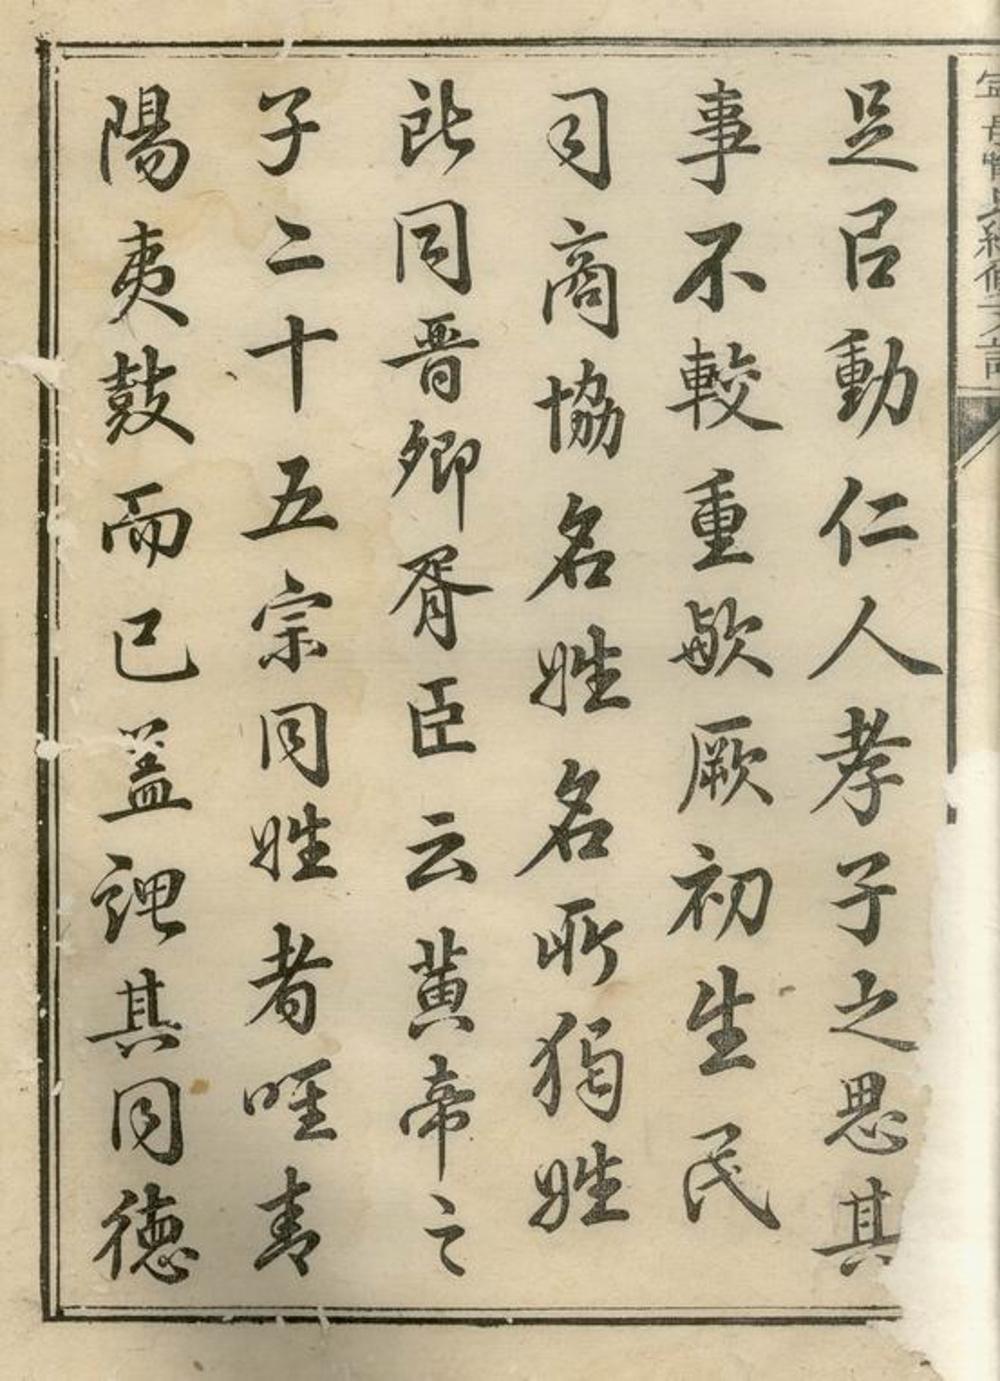 足㠯動仁人孝子之思其
事不較重歟厥初生民
司商協名姓名所獨姓
所同晋卿胥臣云黄帝之
子二十五宗同姓者唯青
陽夷鼓而已蓋謂其同德